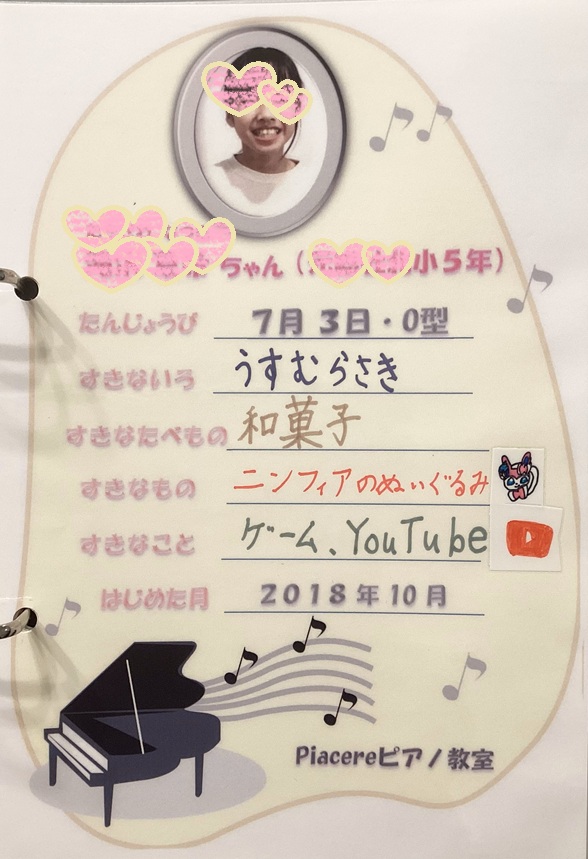 ちゃん（小5年）
たんじょうび 7月 3日・O型
すきないろ うすむらさき
すきなたべもの 和菓子
すきなもの ニンフィアのぬいぐるみ
すきなこと ゲーム、YouTube
はじめた月 2018年10月
Piacereピアノ教室